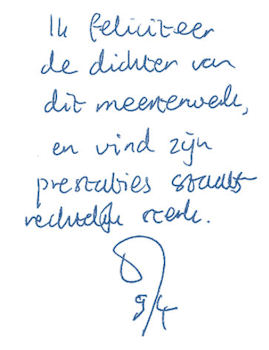 Ik feliciteer
de dichter van
dit meesterwerk,
en vind zijn
prestaties staats
rechtelijk sterk.
9/4